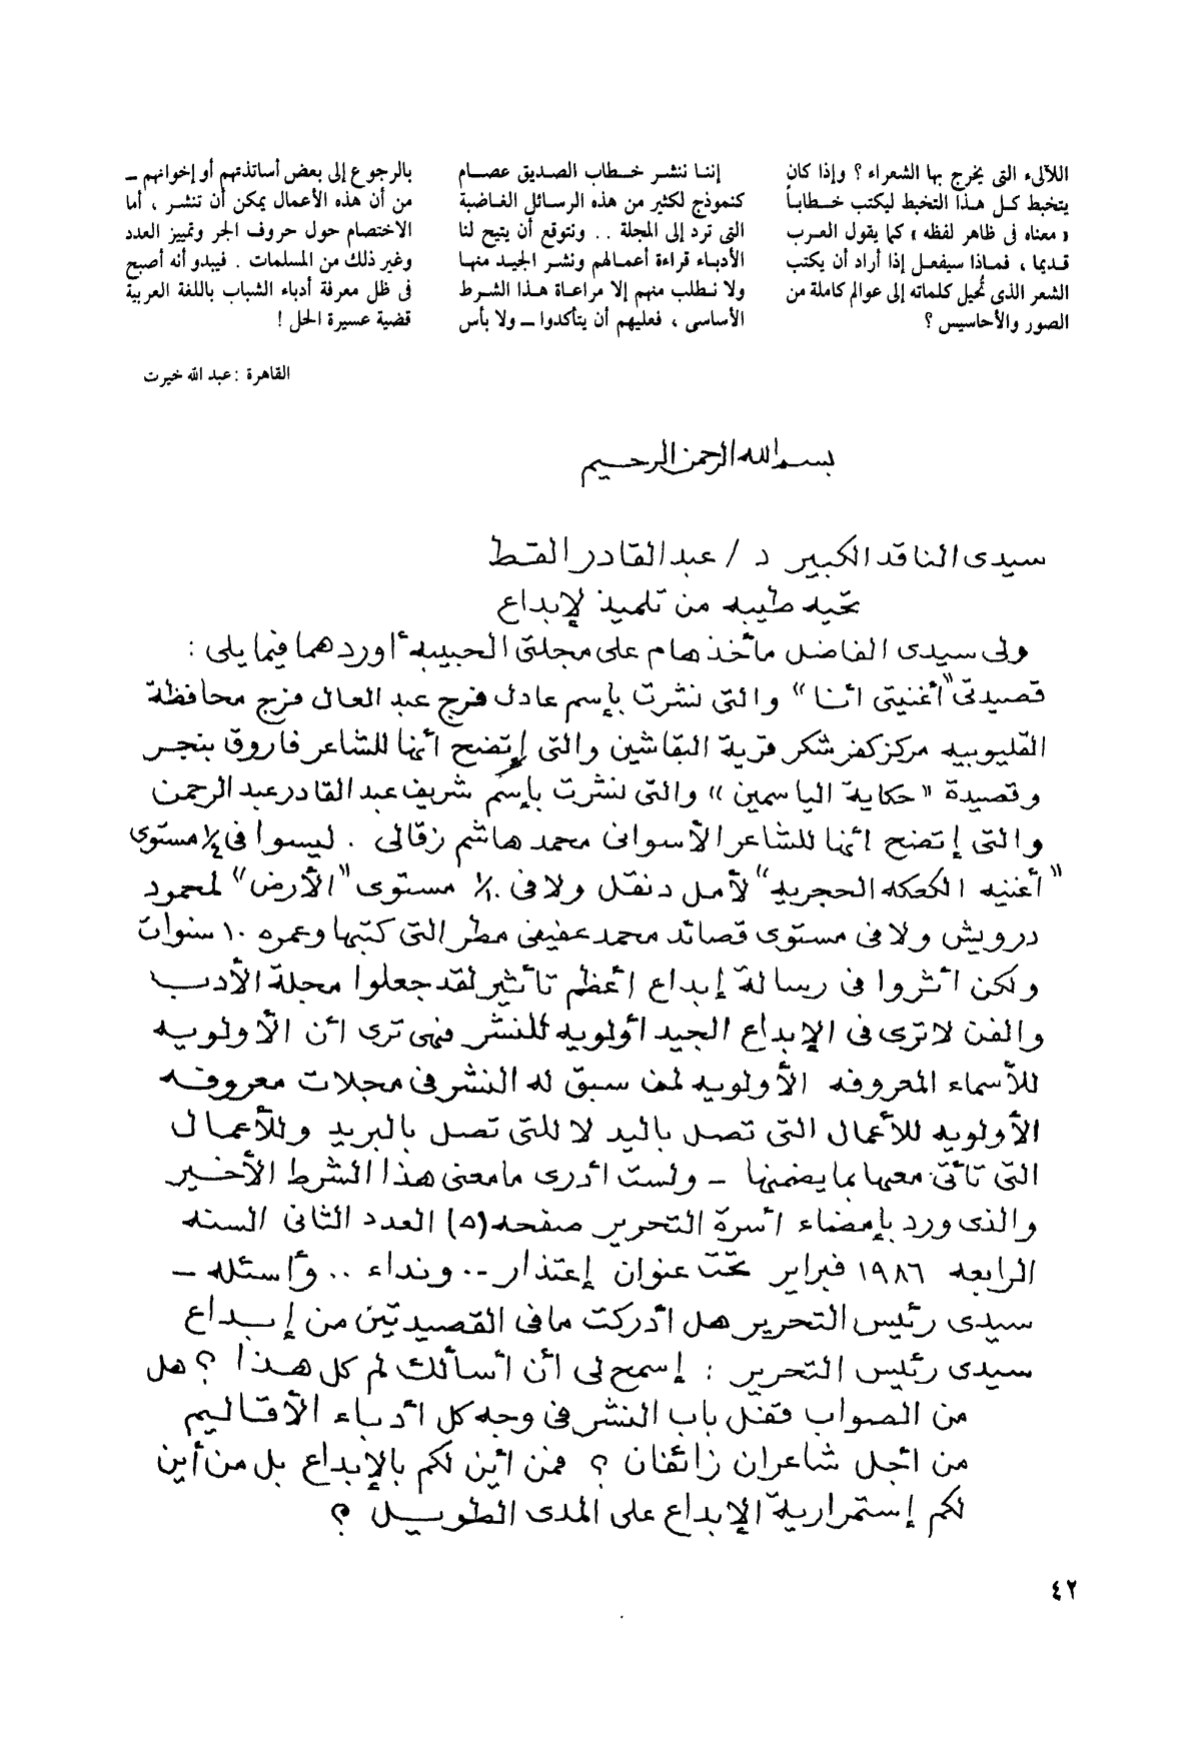 اللآلىء التى يخرج بها الشعراء ؟ وإذا كان
يتخبط كـل هـذا التخبط ليكتب خـطابـاً
« معناه فى ظاهر لفظه » كما يقول العرب
قديما ، فمـاذا سيفعـل إذا أراد أن يكتب
الشعر الذى تُحيل كلماته إلى عوالم كاملة من
الصور والأحاسيس ؟
إننـا ننشـر خـطاب الصديق عصـام
كنموذج لكثير من هذه الرسائل الغـاضبة
التى ترد إلى المجلة . . ونتوقع أن يتيح لنا
الأدبـاء قراءة أعمـالهم ونشـر الجيـد منهـا
ولا نـطلب منهم إلا مراعـاة هـذا الشـرط
الأساسى ، فعليهم أن يتأكدوا ــ ولا بأس
بالرجوع إلى بعض أساتذتهم أو إخوانهم ــ
من أن هذه الأعمال يمكن أن تنشـر ، أما
الاختصام حول حروف الجر وتمييز العدد
وغير ذلك من المسلمات . فيبدو أنه أصبح
فى ظل معرفة أدباء الشباب باللغة العربية
قضية عسيرة الحل !
القاهرة : عبد الله خيرت
بسم الله الرحمن الرحيم
سيدى الناقد الكبير د / عبد القادر القط
تحيه طيبه من تلميذ لإبداع
ولى سيدى الفاضل مأخذ هام على مجلتى الحبيبه أوردهما فيما يلى :
قصيدتى "أغنيتى أنا" والتى نشرت بإسم عادل فرج عبد العال فرج محافظة
القليوبيه مركز كفر شكر قرية البقاشين والتى إتضح أنها للشاعر فاروق بنجر
وقصيدة "حكاية الياسمين" والتى نشرت بإسم شريف عبد القادر عبد الرحمن
والتى إتضح أنها للشاعر الأسوانى محمد هاشم زقالى . ليسوا فى ١/٤ مستوى
"أغنيه الكعكه الحجريه" لأمل دنقل ولا فى ١/١٠ مستوى "الأرض" لمحمود
درويش ولا فى مستوى قصائد محمد عفيفى مطر التى كتبها وعمره ١٠ سنوات
ولكن أثروا فى رسالة إبداع أعظم تأثير لقد جعلوا مجلة الأدب
والفن لا ترى فى الإبداع الجيد أولويه للنشر فهى ترى أن الأولويه
للأسماء المعروفه الأولويه لمن سبق له النشر فى مجلات معروفه
الأولويه للأعمال التى تصل باليد لا للتى تصل بالبريد وللأعمال
التى تأتى معها بما يضمنها – ولست أدرى ما معنى هذا الشرط الأخير
والذى ورد بإمضاء أسرة التحرير صفحه (٥) العدد الثانى السنه
الرابعه ١٩٨٦ فبراير تحت عنوان إعتذار .. ونداء .. وأسئله –
سيدى رئيس التحرير هل أدركت ما فى القصيدتين من إبداع
سيدى رئيس التحرير : إسمح لى أن أسألك لم كل هذا ؟ هل
من الصواب قفل باب النشر فى وجه كل أدباء الأقاليم
من أجل شاعران زائفان ؟ فمن أين لكم بالإبداع بل من أين
لكم إستمرارية الإبداع على المدى الطويل ؟
٤٢